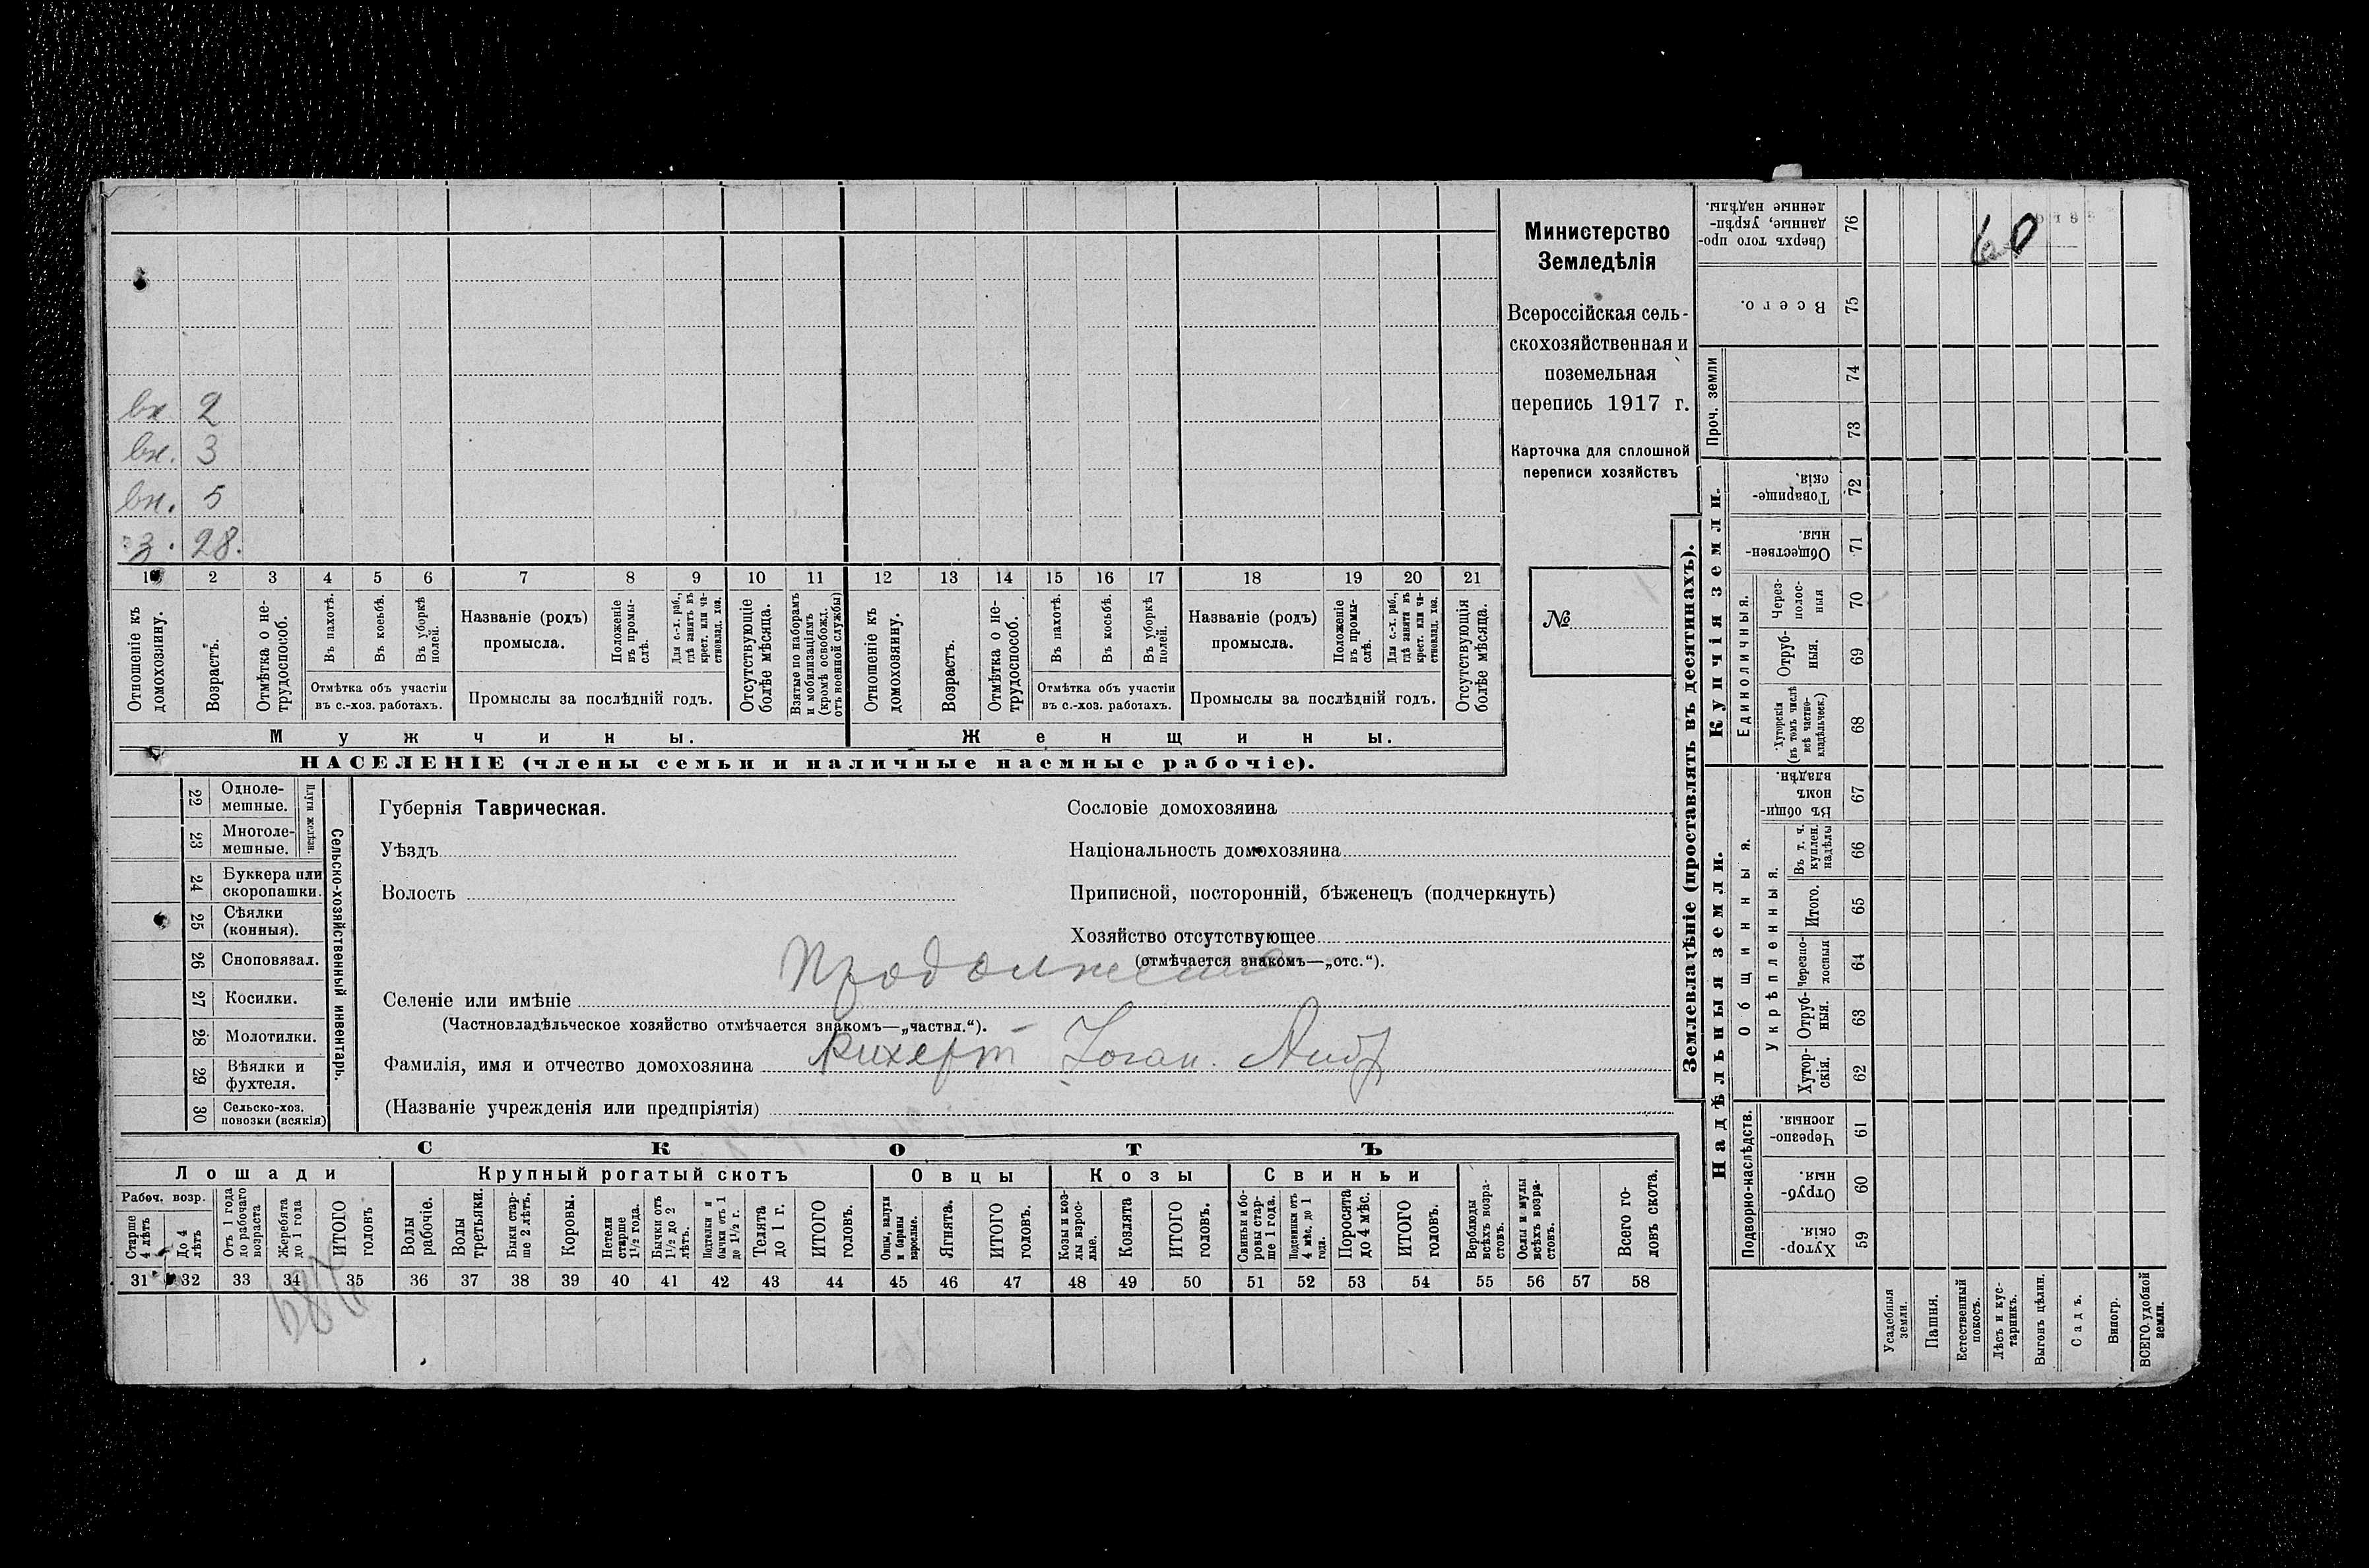 Министерство
Земледѣлія
Всероссійская сель-
скохозяйственная и
поземельная
перепись 1917 г.
Карточка для сплошной
переписи хозяйствъ
№
вн. 2
вн. 3
вн. 5
з. 28.
1 2 3 4 5 6 7 8 9 10 11 12 13 14 15 16 17 18 19 20 21
Отношеніе къ домохозяину.
Возрастъ.
Отмѣтка о не-трудоспособ.
Въ пахотѣ.
Въ косьбѣ.
Въ уборкѣ полей.
Отмѣтка объ участіи
въ с.-хоз. работахъ.
Названіе (родъ)
промысла.
Положеніе въ промы-слѣ.
Для с.-х. раб., гдѣ занятъ въ крест. или ча-стновлад. хоз.
Промыслы за послѣдній годъ.
Отсутствующіе болѣе мѣсяца.
Взятые по наборамъ и мобилизаціямъ (кромѣ освобожд. отъ военной службы)
Отношеніе къ домохозяину.
Возрастъ.
Отмѣтка о не-трудоспособ.
Въ пахотѣ.
Въ косьбѣ.
Въ уборкѣ полей.
Отмѣтка объ участіи
въ с.-хоз. работахъ.
Названіе (родъ)
промысла.
Положеніе въ промы-слѣ.
Для с.-х. раб., гдѣ занята въ крест. или ча-стновлад. хоз.
Промыслы за послѣдній годъ.
Отсутствующія болѣе мѣсяца.
Мужчины. Женщины.
НАСЕЛЕНІЕ (члены семьи и наличные наемные рабочіе).
Сельско-хозяйственный инвентарь.
Плуги желѣзн.
22 Одноле-мешные.
23 Многоле-мешные.
24 Буккера или скоропашки.
25 Сѣялки (конныя).
26 Сноповязал.
27 Косилки.
28 Молотилки.
29 Вѣялки и фухтеля.
30 Сельско-хоз. повозки (всякія)
Губернія Таврическая.
Уѣздъ
Волость
Сословіе домохозяина
Національность домохозяина
Приписной, посторонній, бѣженецъ (подчеркнуть)
Хозяйство отсутствующее
(отмѣчается знакомъ—„отс.“).
Продолжение
Селеніе или имѣніе
(Частновладѣльческое хозяйство отмѣчается знакомъ—„частвл.“).
Фамилія, имя и отчество домохозяина Рихерт Іоган. Андр
(Названіе учрежденія или предпріятія)
СКОТЪ
Лошади Крупный рогатый скотъ Овцы Козы Свиньи
Рабоч. возр.
Старше 4 лѣтъ
До 4 лѣтъ
Отъ 1 года до рабочаго возраста
Жеребята до 1 года
ИТОГО головъ
Волы рабочіе.
Волы третьяки.
Быки стар-ше 2 лѣтъ.
Коровы.
Нетели старше 1½ года.
Бычки отъ 1½ до 2 лѣтъ.
Подтелки и бычки отъ 1 до 1½ г.
Телята до 1 г.
ИТОГО головъ.
Овцы, валухи и бараны взрослые.
Ягнята.
ИТОГО головъ.
Козы и коз-лы взрос-лые.
Козлята
ИТОГО головъ.
Свиньи и бо-ровы стар-ше 1 года.
Подсвинки отъ 4 мѣс. до 1 года.
Поросята до 4 мѣс.
ИТОГО головъ.
Верблюды всѣхъ возра-стовъ.
Ослы и мулы всѣхъ возра-стовъ.
Всего го-ловъ скота.
31 32 33 34 35 36 37 38 39 40 41 42 43 44 45 46 47 48 49 50 51 52 53 54 55 56 57 58
Землевладѣніе (проставлять въ десятинахъ).
Надѣльныя земли.
Купчія земли.
Проч. земли
Подворно-наслѣдств.
Общинныя.
Укрѣпленныя.
Единоличныя.
Сверхъ того про-данные, укрѣп-ленные надѣлы. 76
60
Всего. 75
74
73
Товарище-скія. 72
Обществен-ныя. 71
Через-полос-ныя 70
Отруб-ныя. 69
Хуторскія (въ томъ числѣ всѣ частно-владѣльческ.) 68
Въ общи-номъ владѣн. 67
Въ т. ч. куплен. надѣлы 66
Итого. 65
Черезпо-лосныя 64
Отруб-ныя. 63
Хутор-скія. 62
Черезпо-лосныя. 61
Отруб-ныя. 60
Хутор-скія. 59
Усадебныя земли.
Пашня.
Естественный покосъ.
Лѣсъ и кус-тарникъ.
Выгонъ цѣлин.
Садъ.
Виногр.
ВСЕГО удобной земли.